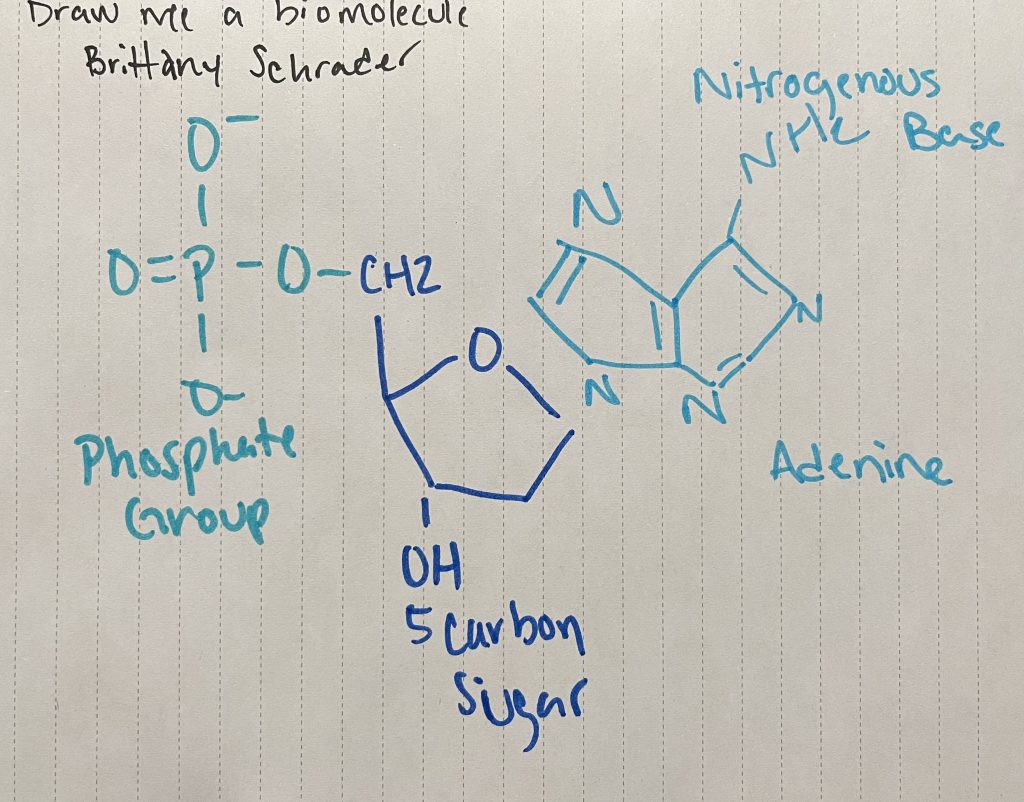 Draw me a biomolecule
Brittany Schrader
Nitrogenous
Base
NH2
O-
O=P-O-CH2
O-
Phosphate
Group
O
OH
5 carbon
Sugar
N
N
N
N
Adenine